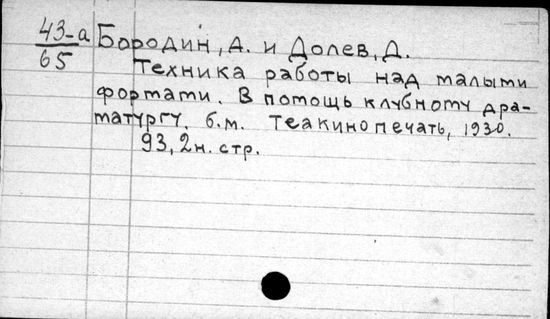 43-а Бородин, А. и Долев, Д.
65
Техника работы над малыми
формами. В помощь клубному дра-
матургу. б.м. Теакинопечать, 1930.
93, 2н. стр.